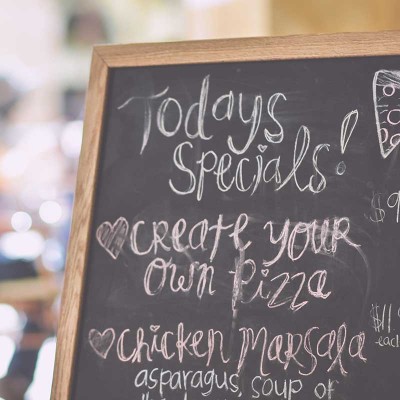 Todays
Specials!
create your
own Pizza
chicken Marsala
asparagus, soup of
$11
each